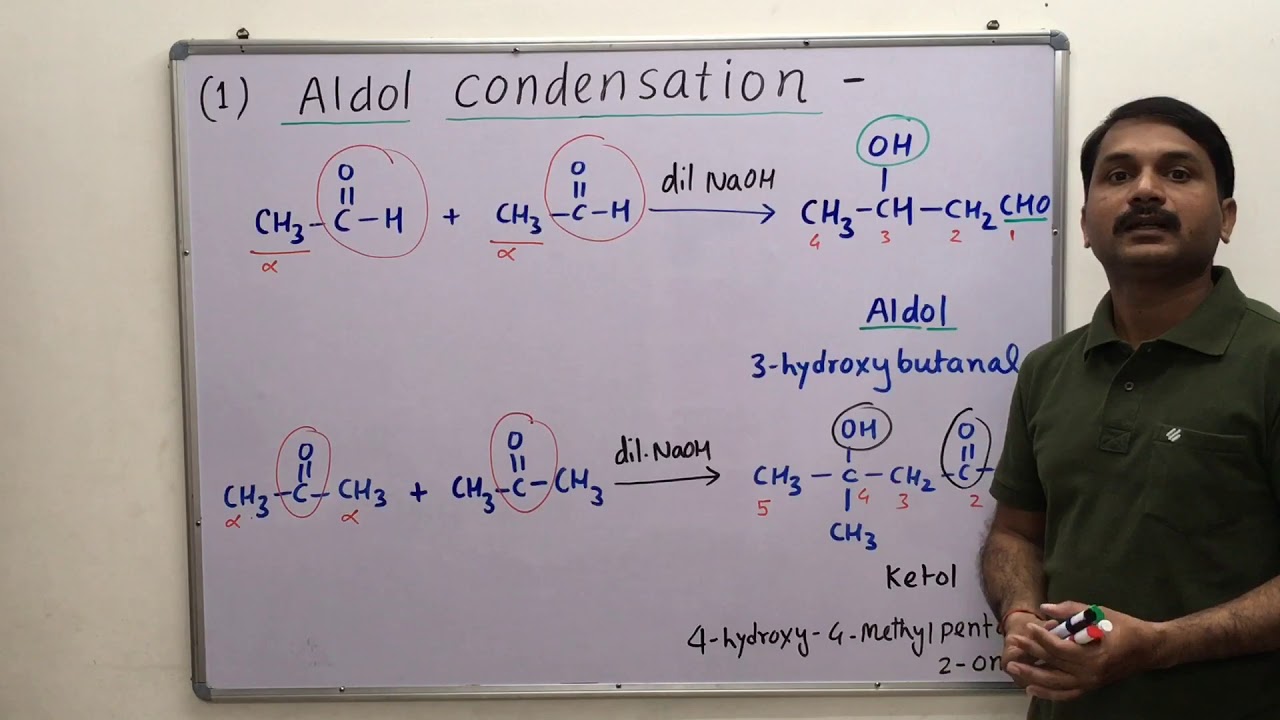 (1) Aldol condensation -
O O OH
|| || |
CH3-C-H + CH3-C-H dil NaOH → CH3-CH-CH2CHO
α α 4 3 2 1
Aldol
3-hydroxybutanal
O O OH O
|| || | ||
CH3-C-CH3 + CH3-C-CH3 dil. NaOH → CH3-C-CH2-C-
α α 5 4 3 2
|
CH3
Ketol
4-hydroxy-4-methylpent
2-on